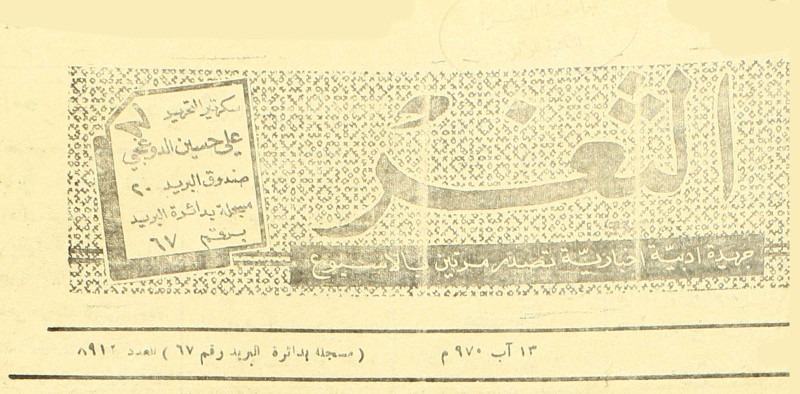 الثغر
جريدة ادبية اخبارية تصدر مرتين بالاسبوع
سكرتير التحرير
علي حسين
صندوق البريد ٢٠
مسجلة بدائرة البريد
برقم ٦٧
١٣ آب ٩٧٠ م (مسجلة بدائرة البريد رقم ٦٧) العدد ٨٩١٢